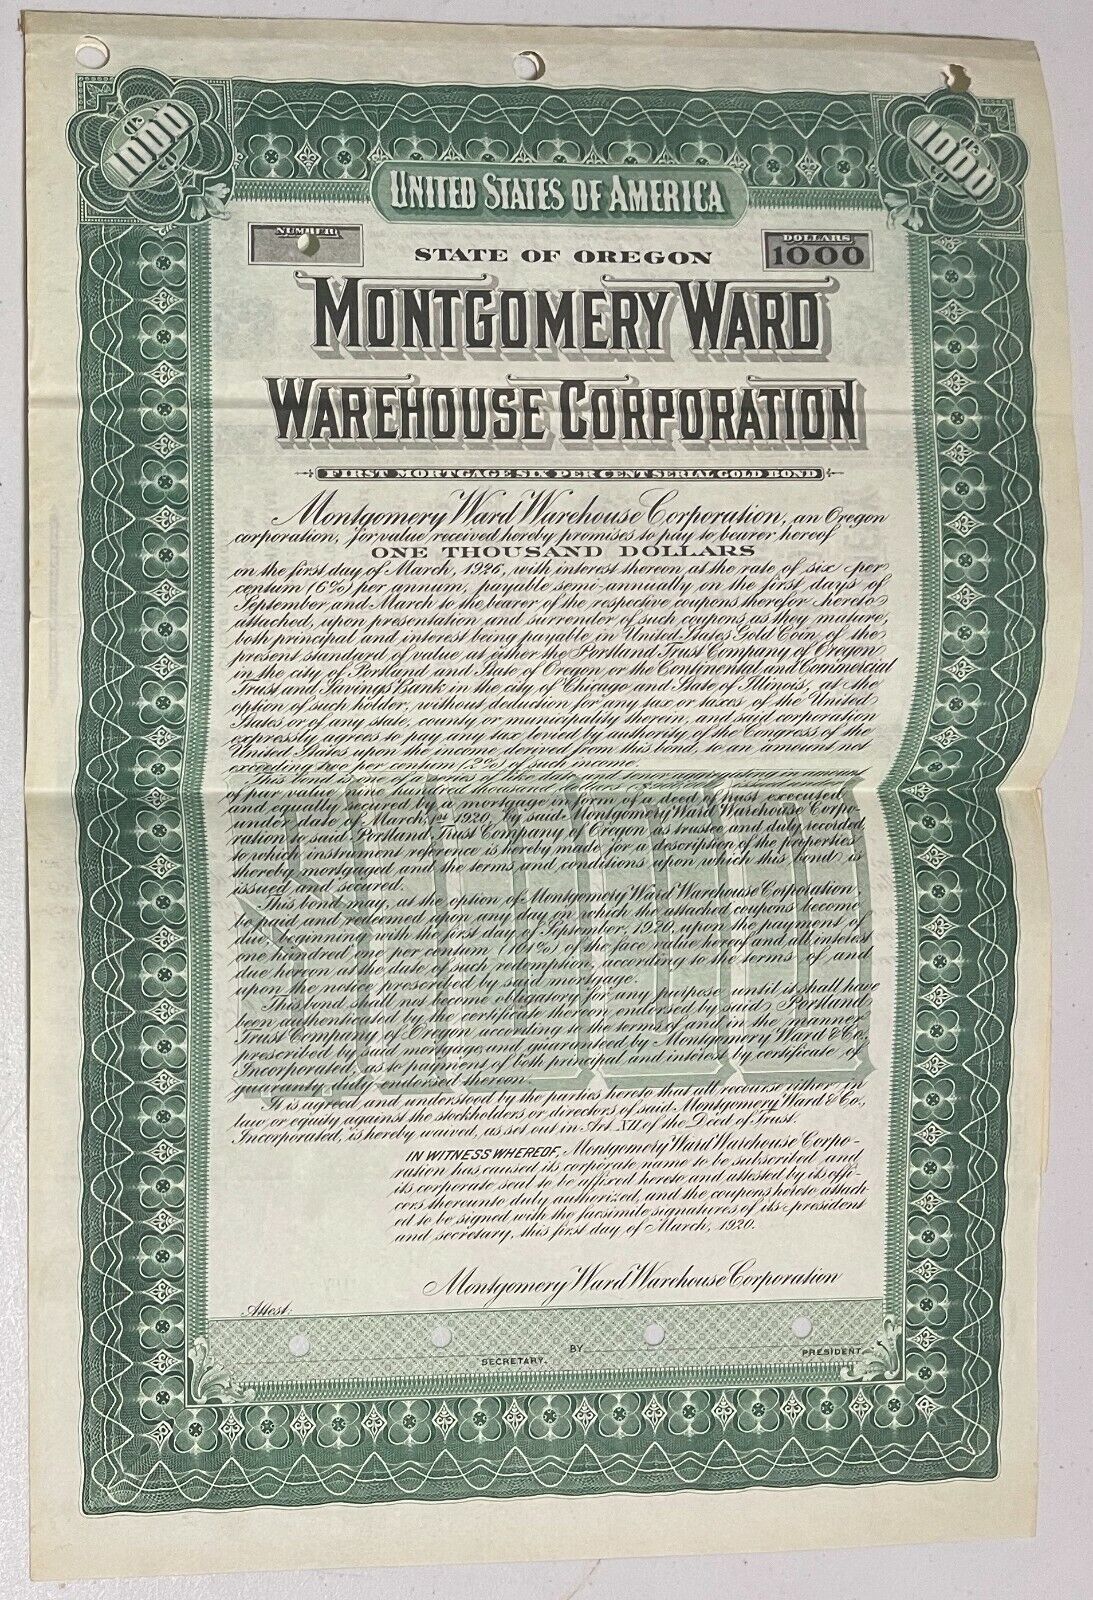 $1000
$1000
UNITED STATES OF AMERICA
NUMBER
STATE OF OREGON
DOLLARS
1000
MONTGOMERY WARD
WAREHOUSE CORPORATION
FIRST MORTGAGE SIX PER CENT SERIAL GOLD BOND
Montgomery Ward Warehouse Corporation, an Oregon
corporation, for value received hereby promises to pay to bearer hereof
ONE THOUSAND DOLLARS
on the first day of March, 1926, with interest thereon at the rate of six per
centum (6%) per annum, payable semi-annually on the first days of
September and March to the bearer of the respective coupons therefor hereto
attached, upon presentation and surrender of such coupons as they mature,
both principal and interest being payable in United States Gold Coin of the
present standard of value at either the Portland Trust Company of Oregon
in the city of Portland and State of Oregon or the Continental and Commercial
Trust and Savings Bank in the city of Chicago and State of Illinois, at the
option of such holder, without deduction for any tax or taxes of the United
States or of any state, county or municipality therein, and said corporation
expressly agrees to pay any tax levied by authority of the Congress of the
United States upon the income derived from this bond, to an amount not
exceeding two per centum (2%) of such income.
This bond is one of a series of like date and tenor aggregating in amount
of par value nine hundred thousand dollars issued under
and equally secured by a mortgage in form of a deed of trust executed
under date of March, 1st 1920, by said Montgomery Ward Warehouse Corpo-
ration to said Portland Trust Company of Oregon as trustee and duly recorded
to which instrument reference is hereby made for a description of the properties
thereby mortgaged and the terms and conditions upon which this bond is
issued and secured.
This bond may, at the option of Montgomery Ward Warehouse Corporation,
be paid and redeemed upon any day on which the attached coupons become
due, beginning with the first day of September, 1920, upon the payment of
one hundred one per centum (101%) of the face value hereof and all interest
due hereon at the date of such redemption, according to the terms of and
upon the notice prescribed by said mortgage.
This bond shall not become obligatory for any purpose until it shall have
been authenticated by the certificate thereon endorsed by said Portland
Trust Company of Oregon according to the terms of and in the manner
prescribed by said mortgage, and guaranteed by Montgomery Ward & Co.,
Incorporated, as to payment of both principal and interest by certificate of
guaranty duly endorsed thereon.
It is agreed and understood by the parties hereto that all recourse either in
law or equity against the stockholders or directors of said Montgomery Ward & Co.,
Incorporated, is hereby waived, as set out in Art. XII of the Deed of Trust.
IN WITNESS WHEREOF, Montgomery Ward Warehouse Corpo-
ration has caused its corporate name to be subscribed and
its corporate seal to be affixed hereto and attested by its offi-
cers thereunto duly authorized, and the coupons hereto attach-
ed to be signed with the facsimile signatures of its president
and secretary, this first day of March, 1920.
Montgomery Ward Warehouse Corporation
Attest:
SECRETARY.
BY
PRESIDENT.
$1000